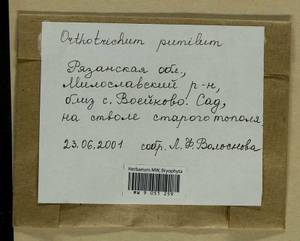 Orthotrichum pumilum
Рязанская обл.,
Милославский р-н,
близ с. Воейково. Сад,
на стволе старого тополя.
23.06.2001 собр. Л.Ф. Волоснова
Herbarium MW, Bryophyta
MW 9 031 239